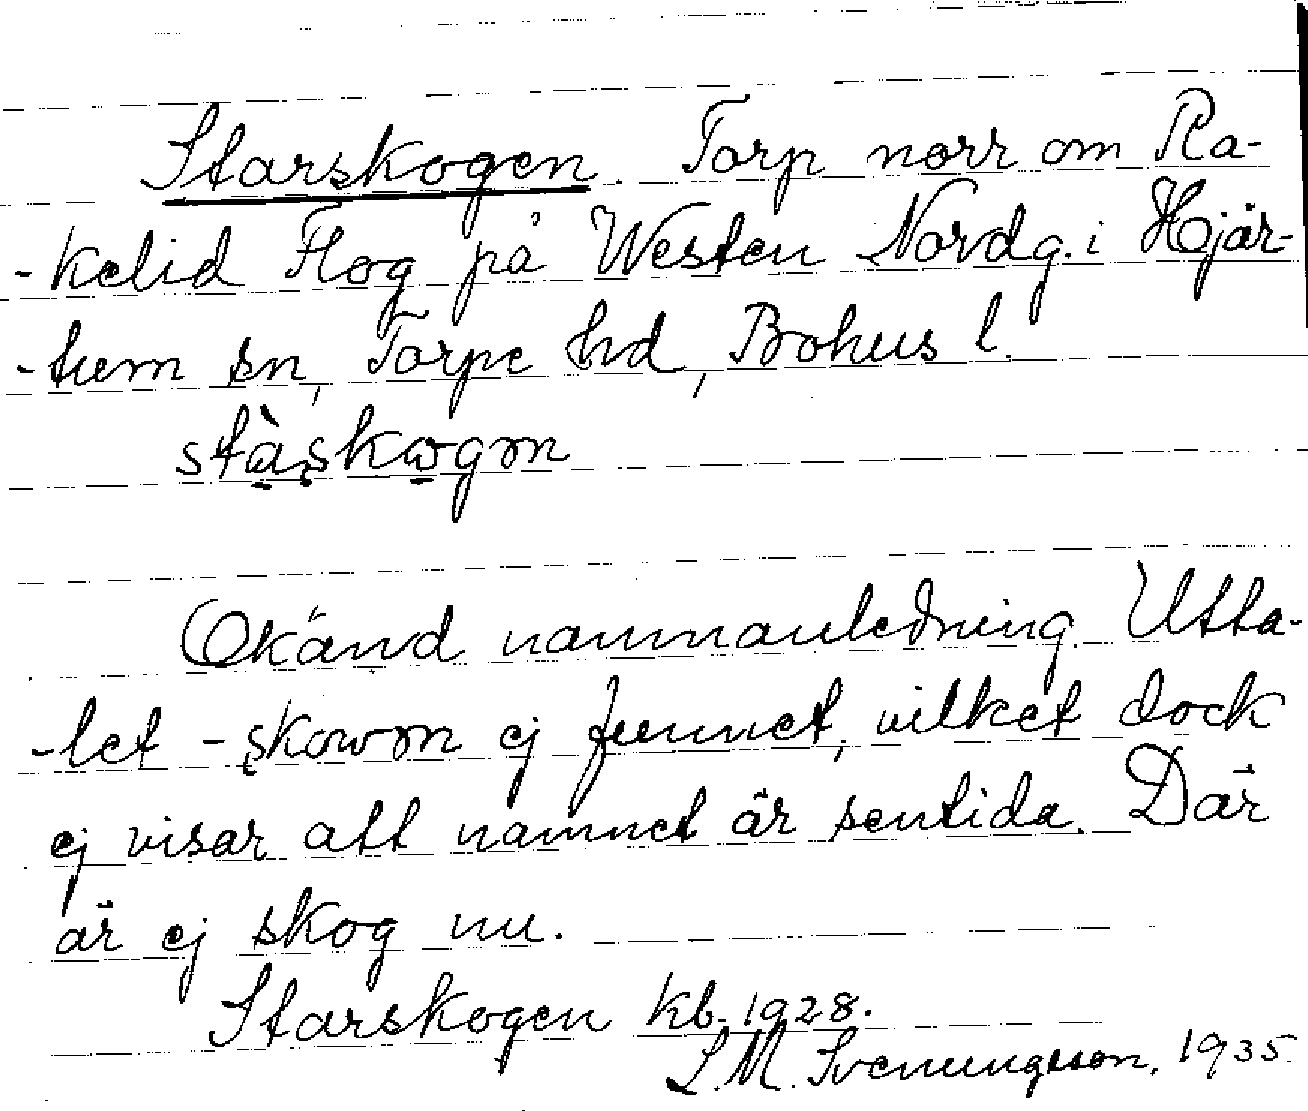 Starskogen. Torp norr om Ra-
-kelid Flog på Westen Nordg. i Hjär-
-tum sn, Torpe hd, Bohus l.
stàskωgm
Okänd namnanledning. Utta-
-let -skowm ej funnet, vilket dock
ej visar att namnet är sentida. Där
är ej skog nu.
Starskogen kb. 1928.
L.M. Svenungsson, 1935.